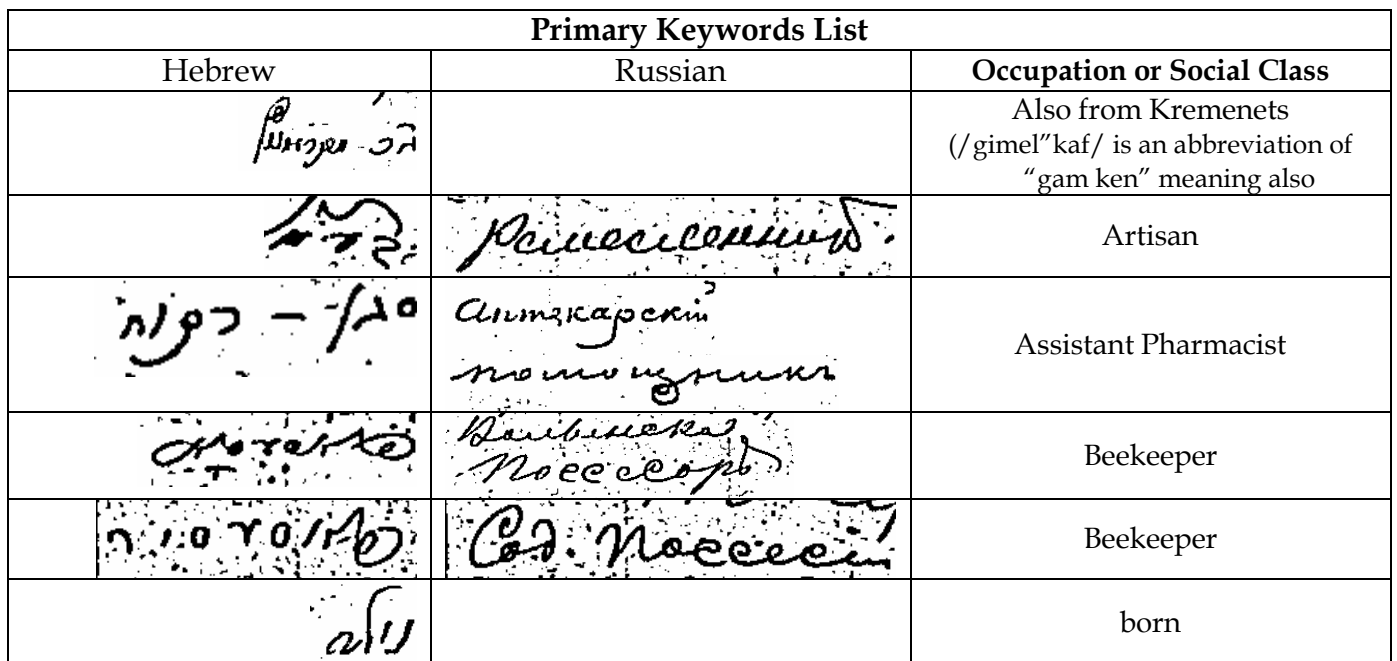 Primary Keywords List
Hebrew Russian Occupation or Social Class
Also from Kremenets
(/gimel”kaf/ is an abbreviation of
“gam ken” meaning also
Ремесленникъ. Artisan
סגן – רקוח Аптекарскій
помощникъ Assistant Pharmacist
Поссессоръ Beekeeper
Сод. Поссесіи Beekeeper
נולד born